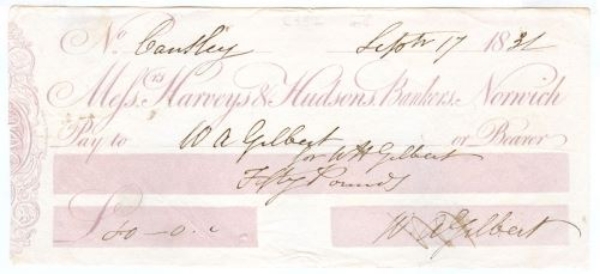 No. Cantley Septr 17 1831
Messrs. Harveys & Hudsons, Bankers, Norwich
Pay to W A Gilbert or Bearer
for W H Gilbert
Fifty Pounds
£ 50 - 0 .
W A Gilbert